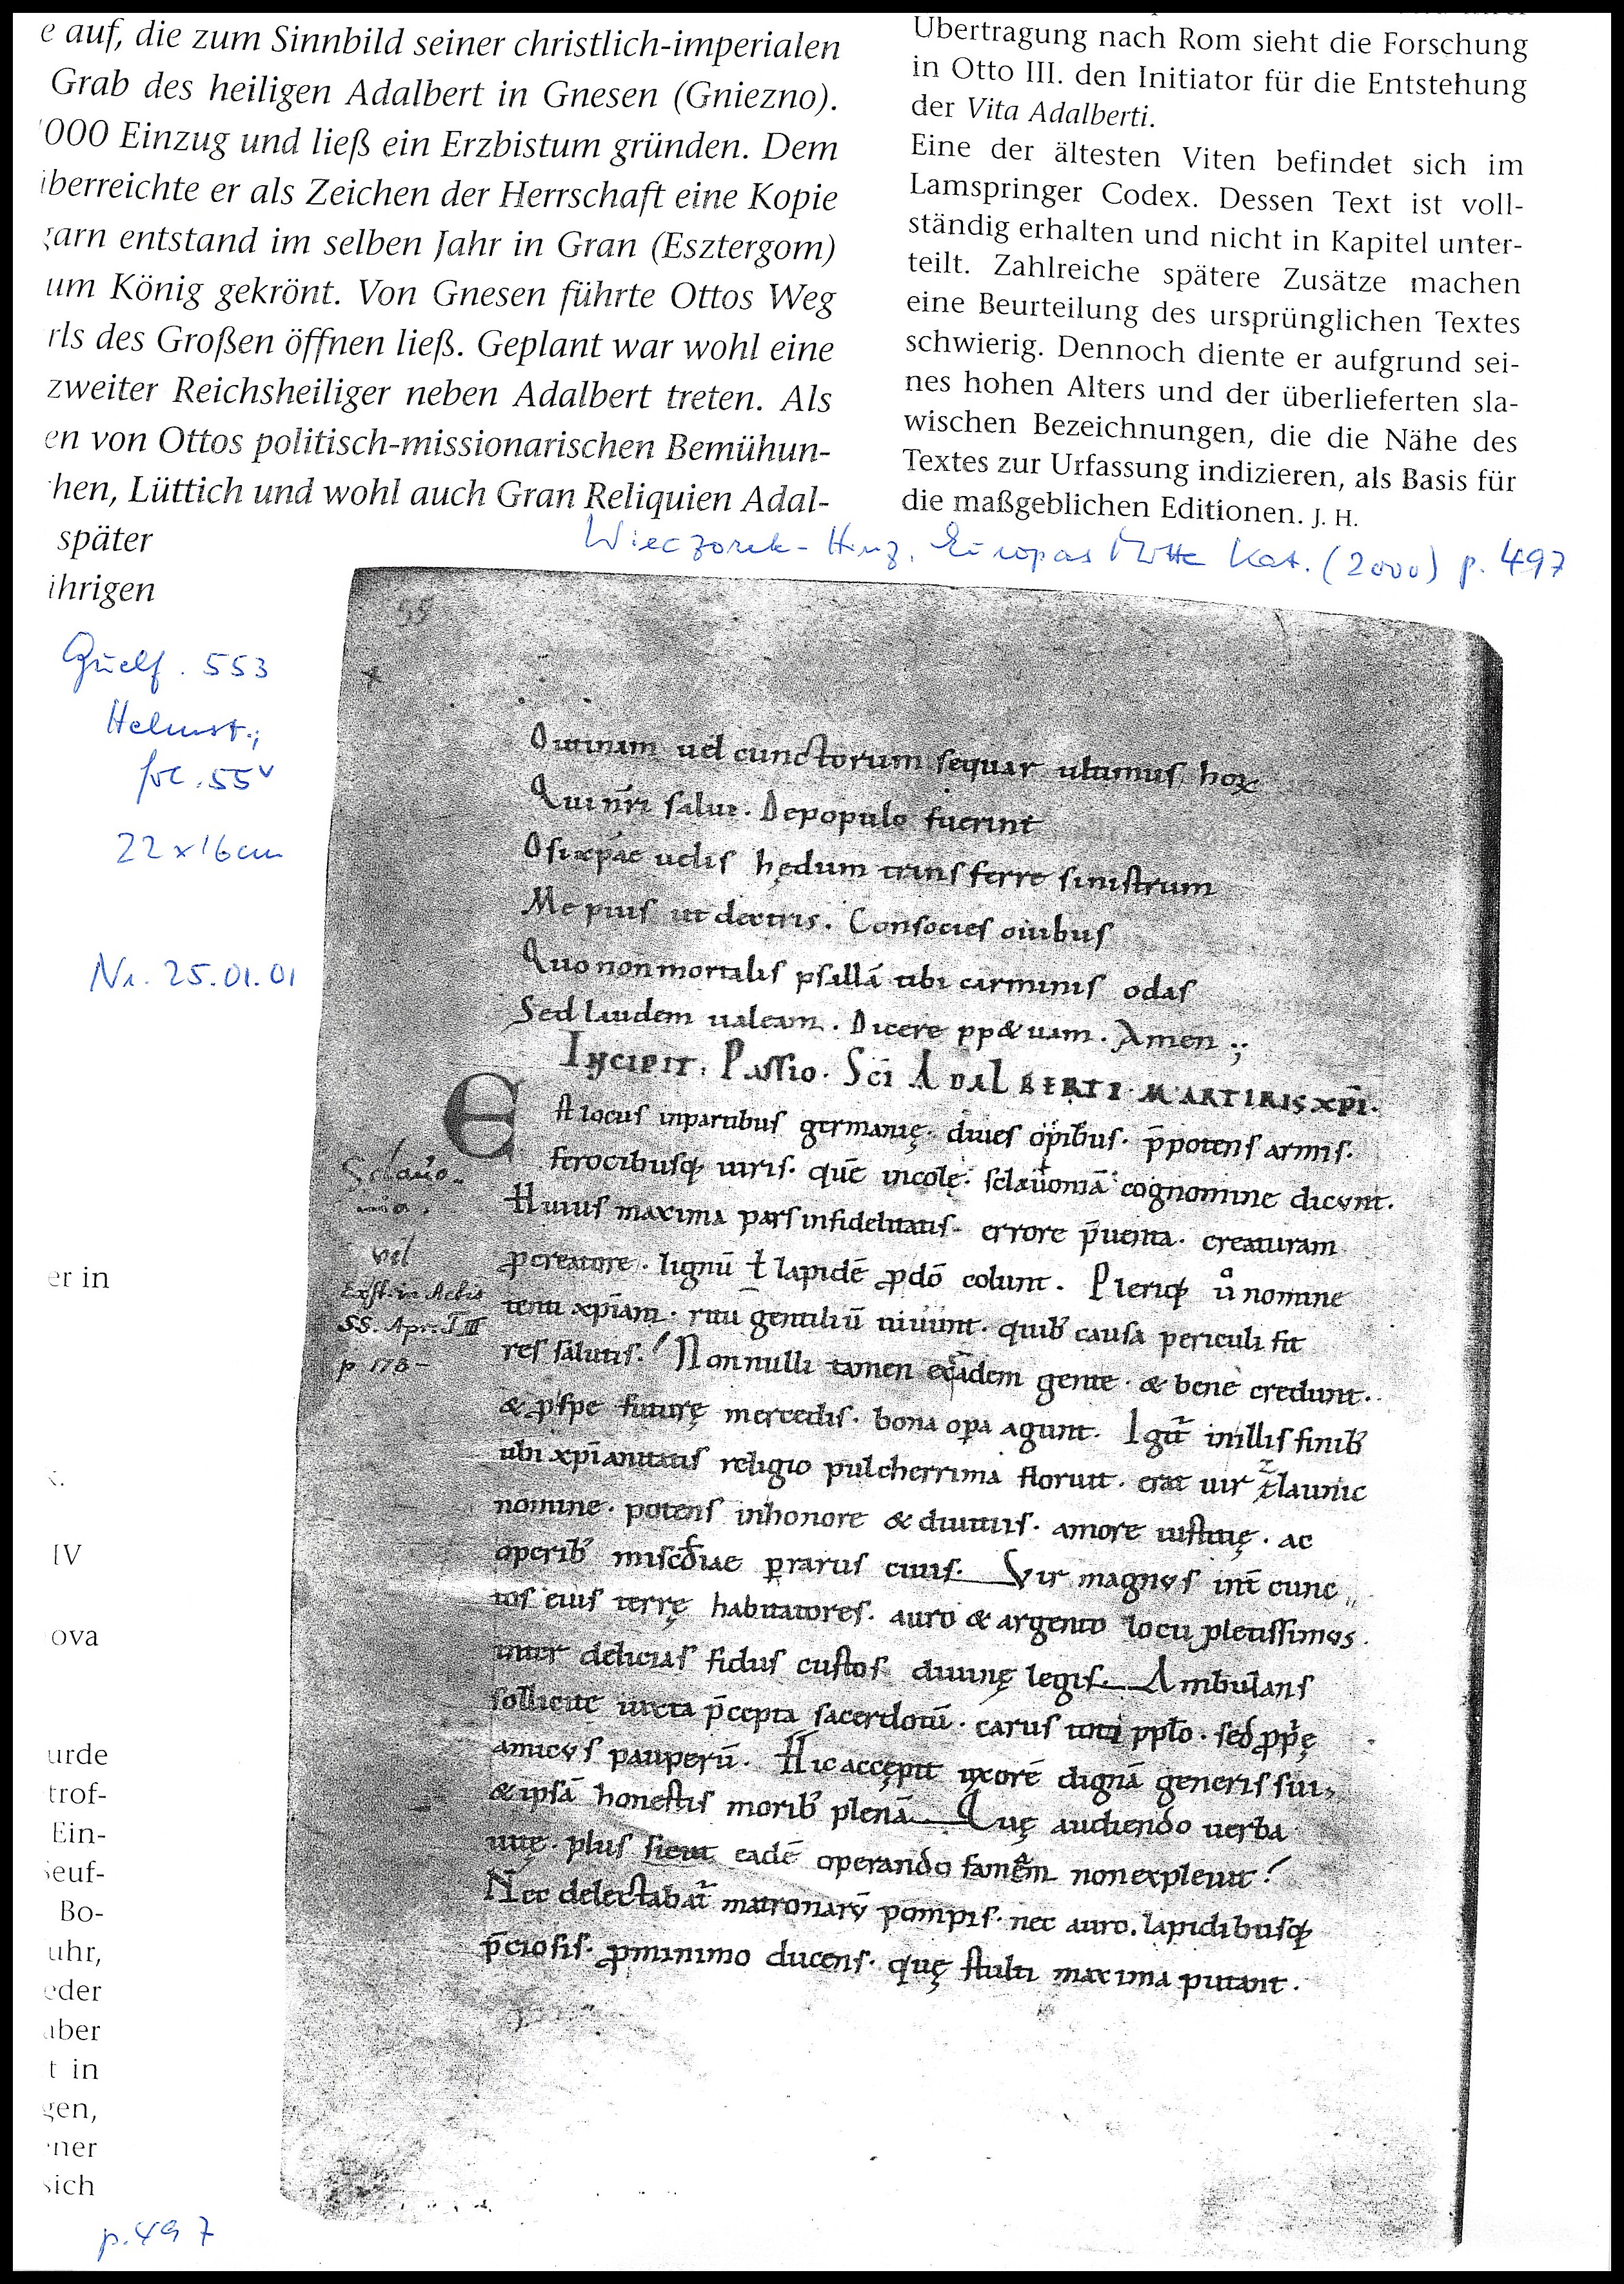 e auf, die zum Sinnbild seiner christlich-imperialen
Grab des heiligen Adalbert in Gnesen (Gniezno).
000 Einzug und ließ ein Erzbistum gründen. Dem
iberreichte er als Zeichen der Herrschaft eine Kopie
garn entstand im selben Jahr in Gran (Esztergom)
um König gekrönt. Von Gnesen führte Ottos Weg
rls des Großen öffnen ließ. Geplant war wohl eine
zweiter Reichsheiliger neben Adalbert treten. Als
en von Ottos politisch-missionarischen Bemühun-
hen, Lüttich und wohl auch Gran Reliquien Adal-
später
ihrigen
Übertragung nach Rom sieht die Forschung
in Otto III. den Initiator für die Entstehung
der Vita Adalberti.
Eine der ältesten Viten befindet sich im
Lamspringer Codex. Dessen Text ist voll-
ständig erhalten und nicht in Kapitel unter-
teilt. Zahlreiche spätere Zusätze machen
eine Beurteilung des ursprünglichen Textes
schwierig. Dennoch diente er aufgrund sei-
nes hohen Alters und der überlieferten sla-
wischen Bezeichnungen, die die Nähe des
Textes zur Urfassung indizieren, als Basis für
die maßgeblichen Editionen. J. H.
Wieczorek-Hinz, Europas Mitte Kat. (2000) p. 497
Guelf. 553
Helmst.;
fol. 55v
22 x 16 cm
Nr. 25.01.01
55
Outinam uel cunctorum sequar ultimus hox
Qui nr̄i salui. De populo fuerint
O si xp̄ae uelis hędum transferre sinistrum
Me pius ut dextris. Consocies ouibus
Quo non mortalis psallā tibi carminis odas
Sed laudem ualeam. Dicere pp&uam. Amen ;
INCIPIT. Passio. Sci ADALBERTI. MARTIRIS xp̄i.
Est locus inpartibus germanię. diues opibus. p̄potens armis.
ferocibusq; uiris. quē incolę. sclauoniā cognomine dicunt.
Huius maxima pars infidelitatis errore p̄uenta. creaturam
p̱creatore. lignū ł lapidē p̱dō colunt. Pleriq; ů nomine
tenu xp̄iani. ritu gentiliū uiuunt. quib; causa periculi fit
res salutis. Nonnulli tamen exeadem gente. & bene credunt.
& p̱spe futurę mercedis. bona opa agunt. Igit̄ inillis finib;
ubi xp̄ianitatis religio pulcherrima floruit. erat uir zlaunic
nomine. potens inhonore & diuitiis. amore iustitię. ac
operib; misc̄diae p̱rarus ciuis. Vir magnus int̄ cunc
tos eius terrę habitatores. auro & argento locupletissimus.
inter delicias fidus custos diuinę legis. Ambulans
sollicite iuxta p̄cepta sacerdotū. carus toti pplo. sed p̱p̱ę
amicus pauperū. Hic accepit uxorē dignā generis sui,
& ipsā honestis morib; plenā. Quę audiendo uerba
uitę. plus sicut eadē operando famem non expleuit.
Nec delectabat̄ matronarū pompis. nec auro. lapidibusq;
p̄ciosis. p̱minimo ducens. quę stulti maxima putant.
Sclauo-
nia.
vel
Exst. in Actis
SS. Apr. T III
p 178 -
er in
IV
ova
urde
trof-
Ein-
seuf-
Bo-
uhr,
eder
aber
t in
gen,
ner
sich
p. 497